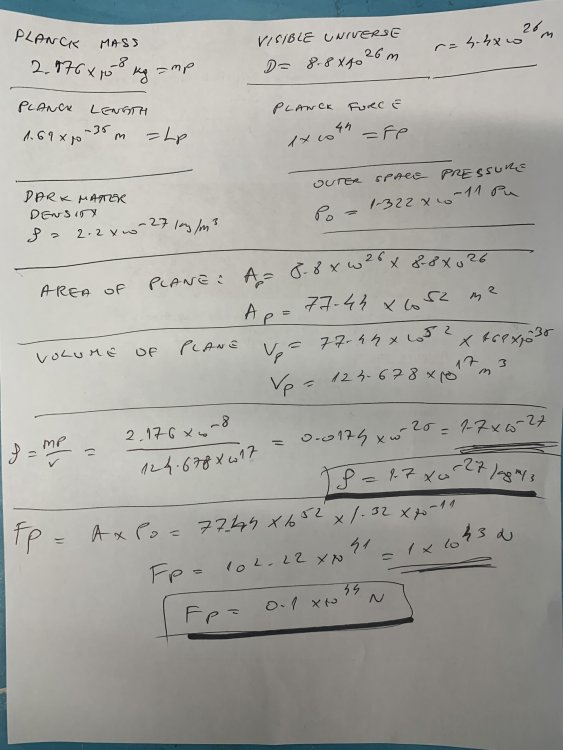 PLANCK MASS
2.176 × 10⁻⁸ kg = mp
VISIBLE UNIVERSE
D = 8.8 × 10²⁶ m
r = 4.4 × 10²⁶ m
PLANCK LENGTH
1.69 × 10⁻³⁵ m = Lp
PLANCK FORCE
1 × 10⁴⁴ = Fp
DARK MATTER
DENSITY
ρ = 2.2 × 10⁻²⁷ kg/m³
OUTER SPACE PRESSURE
P₀ = 1.322 × 10⁻¹¹ Pa
AREA OF PLANE: Ap = 8.8 × 10²⁶ × 8.8 × 10²⁶
Ap = 77.44 × 10⁵² m²
VOLUME OF PLANE Vp = 77.44 × 10⁵² × 1.61 × 10⁻³⁵
Vp = 124.678 × 10¹⁷ m³
ρ = mp/v = 2.176 × 10⁻⁸ / 124.678 × 10¹⁷ = 0.0174 × 10⁻²⁵ = 1.7 × 10⁻²⁷
ρ = 1.7 × 10⁻²⁷ kg m/3
Fp = A × P₀ = 77.44 × 10⁵² × 1.32 × 10⁻¹¹
Fp = 102.22 × 10⁴¹ = 1 × 10⁴³ N
Fp = 0.1 × 10⁴⁴ N